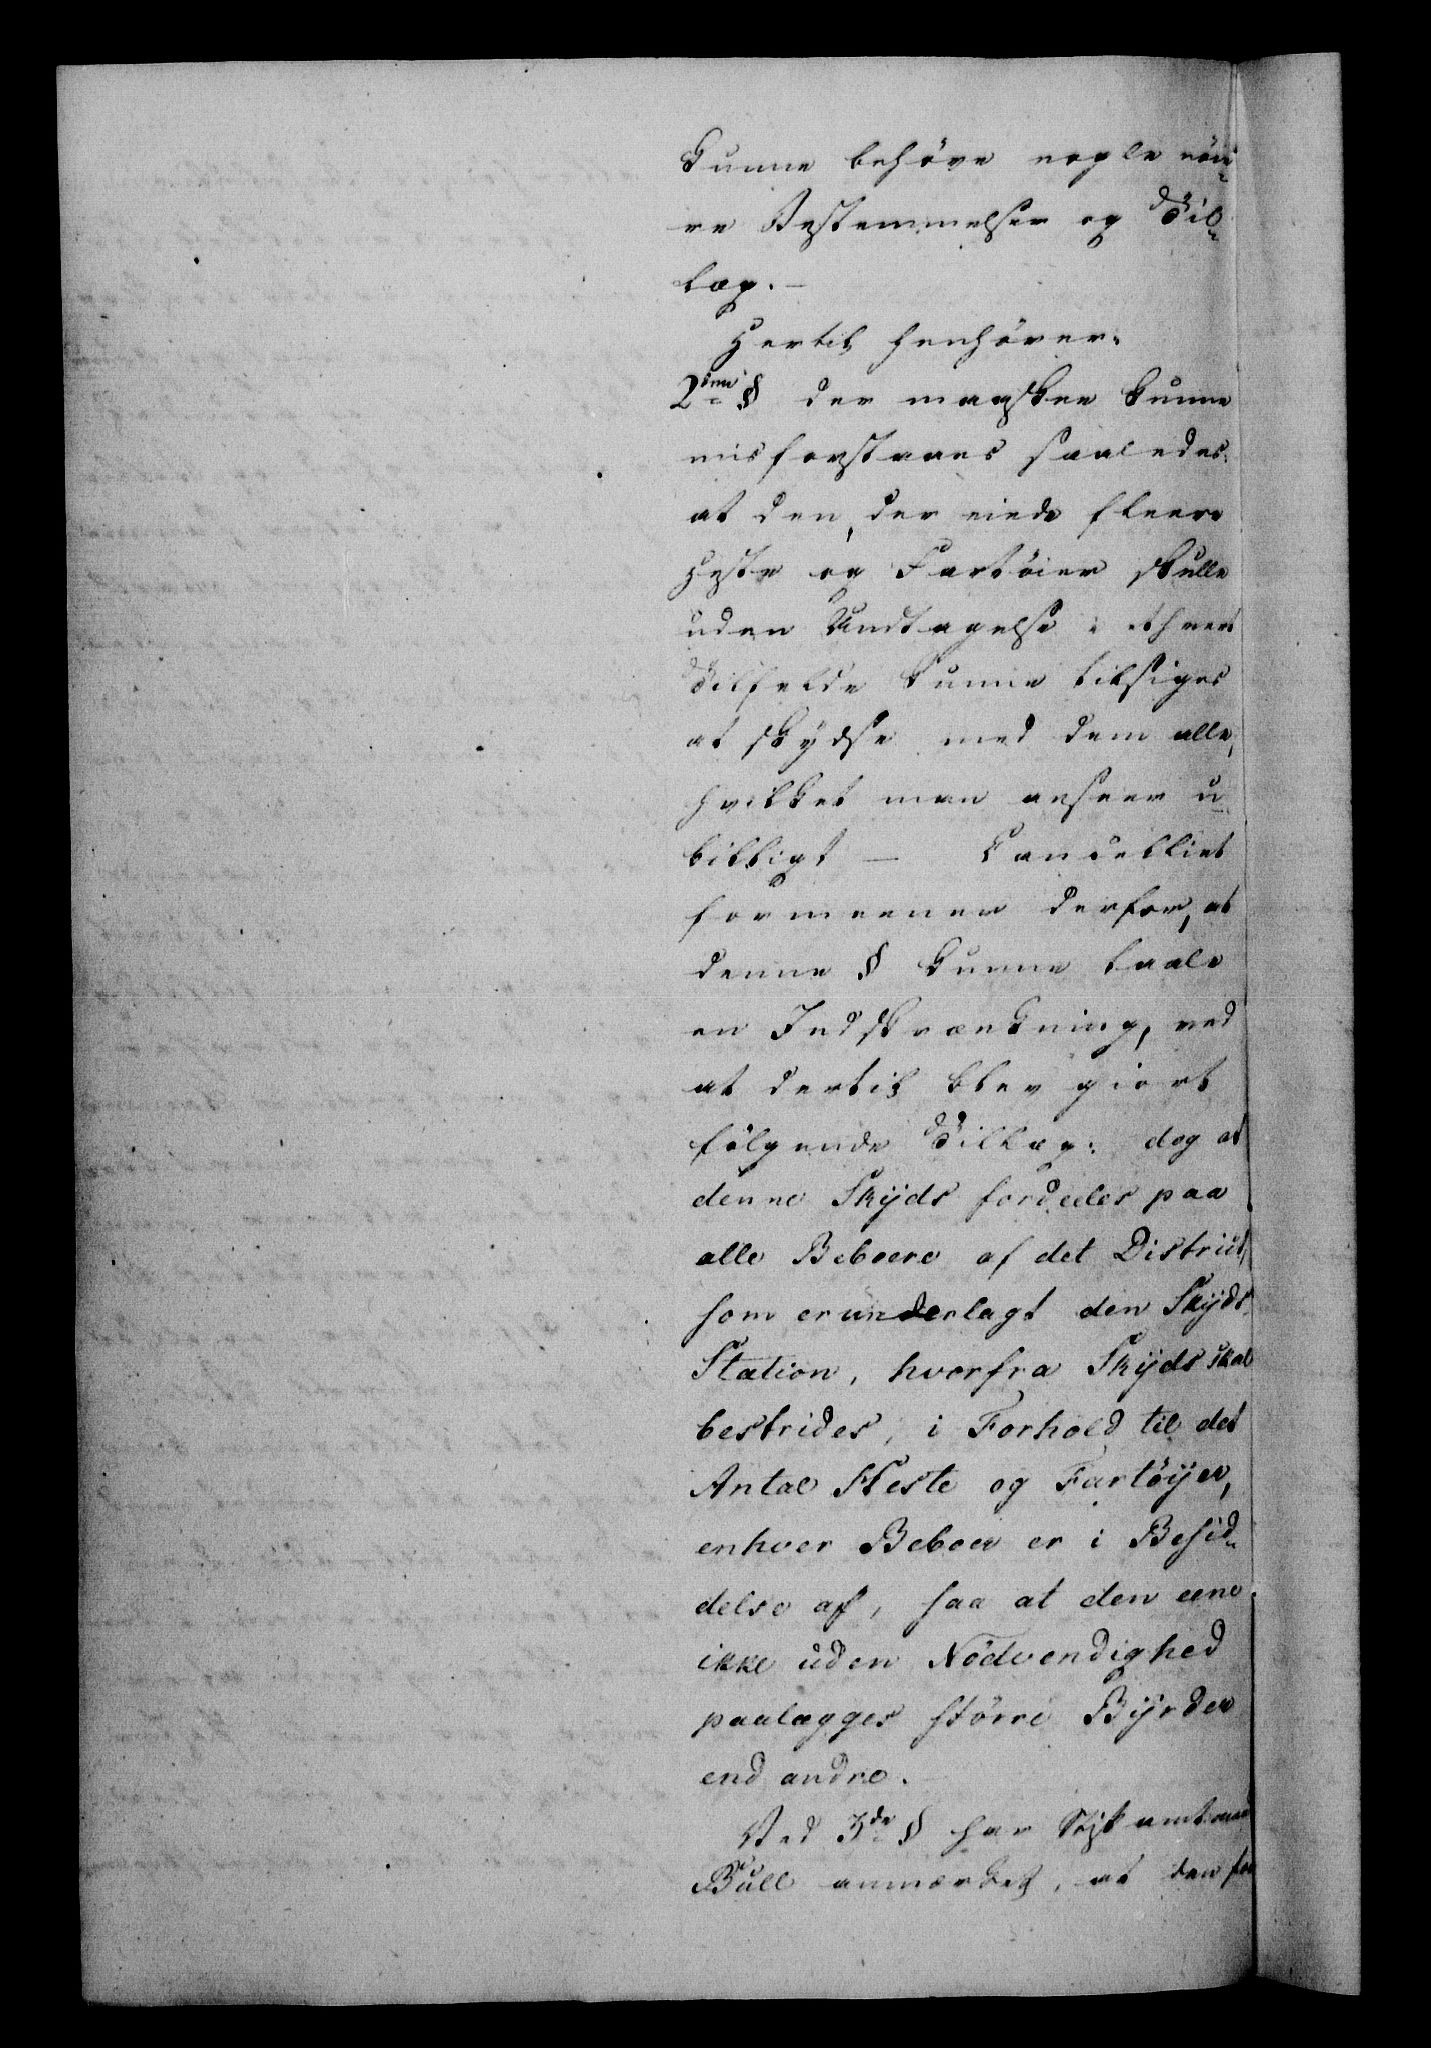 kunne behöve nogle nöie-
re Bestemmelser og Til-
læg. —
Hertil henhörer.
2den § der maaskee kunne
misforstaaes saaledes.
at den, der eiede fleere
Heste og Fartöier skulle
uden Undtagelse i ethvert
Tilfelde kunne tilsiges
at skydse med dem alle,
hvilket man anseer u-
billigt — Cancelliet
formeener derfor, at
denne § kunne taale
en Indskrænkning, ved
at dertil blev giort
fölgende Tillæg: dog at
denne Skÿds fordeeles paa
alle Beboere af det District,
som er underlagt den Skÿds-
Station, hvorfra Skÿds skal
bestrides, i Forhold til det
Antal Heste og Fartöÿer,
enhver Beboer er i Besid-
delse af, saa at den eene
ikke uden Nödvendighed
paalægges större Bÿrder
end andre.
Ved 3de § har Stiftamtmand
Bull anmærket, at den for